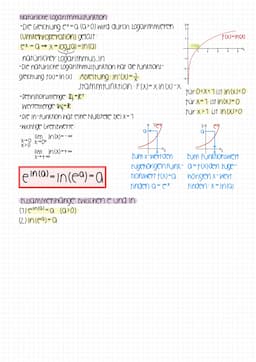 Natürliche Logarithmusfunktion
-Die Gleichung eˣ=a (a>0) wird durch Logarithmieren
(Umkehroperation) gelöst
eˣ=a → x=logₑ(a)=ln(a)
natürlicher Logarithmus: ln
-Die natürliche Logarithmusfunktion hat die Funktions-
gleichung f(x)=ln(x) Ableitung: ln'(x)=1/x
Stammfunktion: F(x)=x·ln(x)-x
-Definitionsmenge: D
Wertemenge: W
-Die ln-Funktion hat eine Nullstelle bei x=1
-wichtige Grenzwerte
lim ln(x)=-∞
x→0
x>0
lim ln(x)=+∞
x→+∞
e^ln(a)=ln(eᵃ)=a
f(x)=ln(x)
für 0<x<1 ist ln(x)<0
für x=1 ist ln(x)=0
für x>1 ist ln(x)>0
zum x-Wert den
zugehörigen Funk-
tionswert f(x)=a
finden: a=eˣ
zum Funktionswert
a=f(x) den zuge-
hörigen x-Wert
finden: x=ln(a)
Zusammenhänge zwischen e und ln
(1) e^ln(a)=a (a>0)
(2) ln(eᵃ)=a